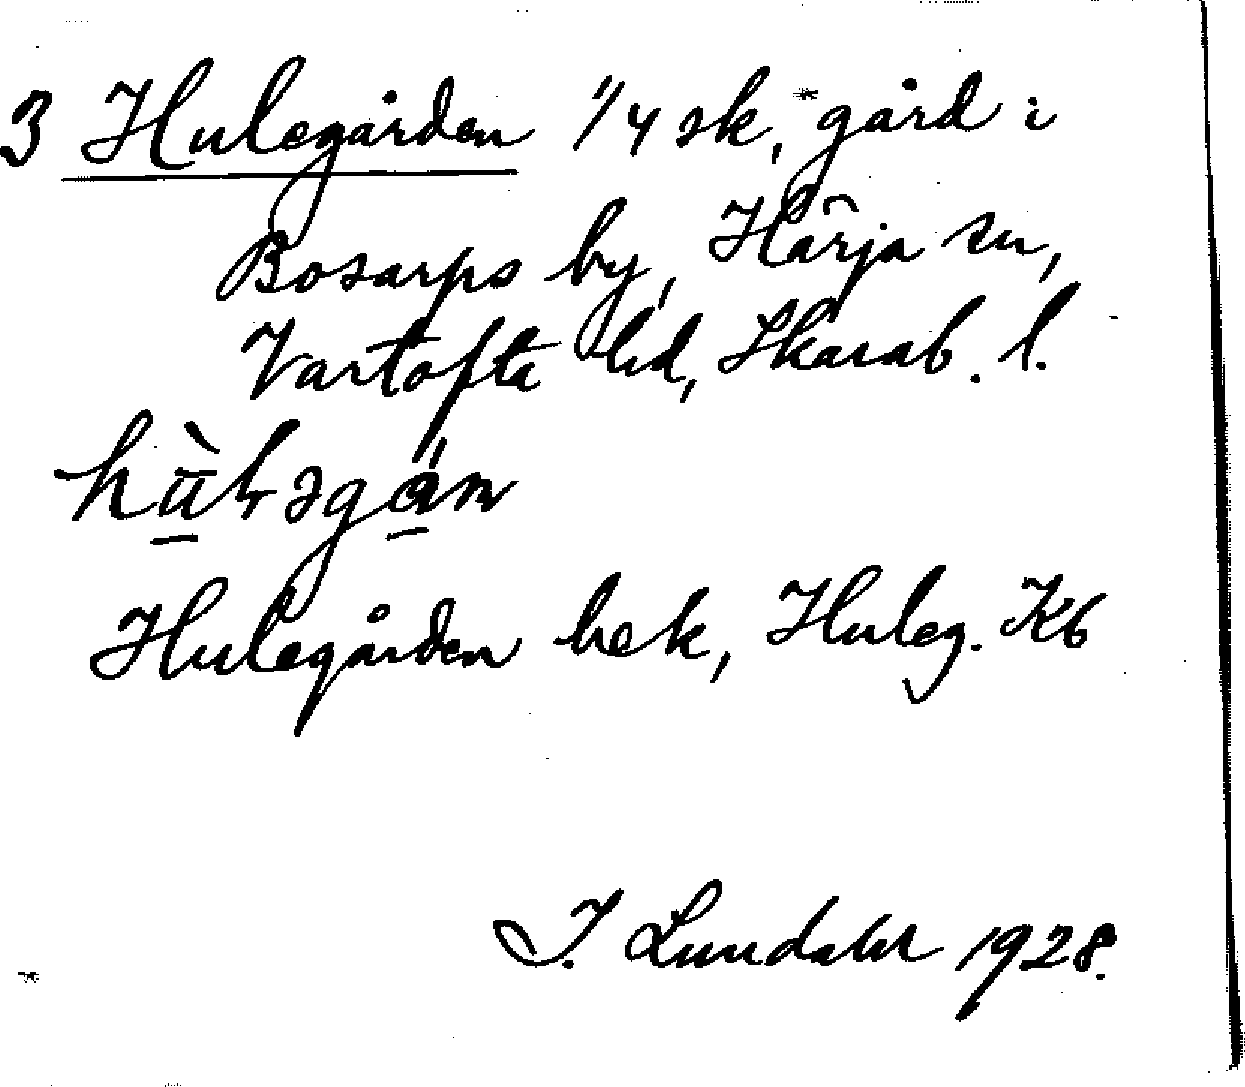 3 Hulegården 1/4 sk, gård i
Bosarps by, Härja sn,
Vartofta hd, Skarab. l.
Hulegården bek, Huleg. Kb
I. Lundahl 1928.